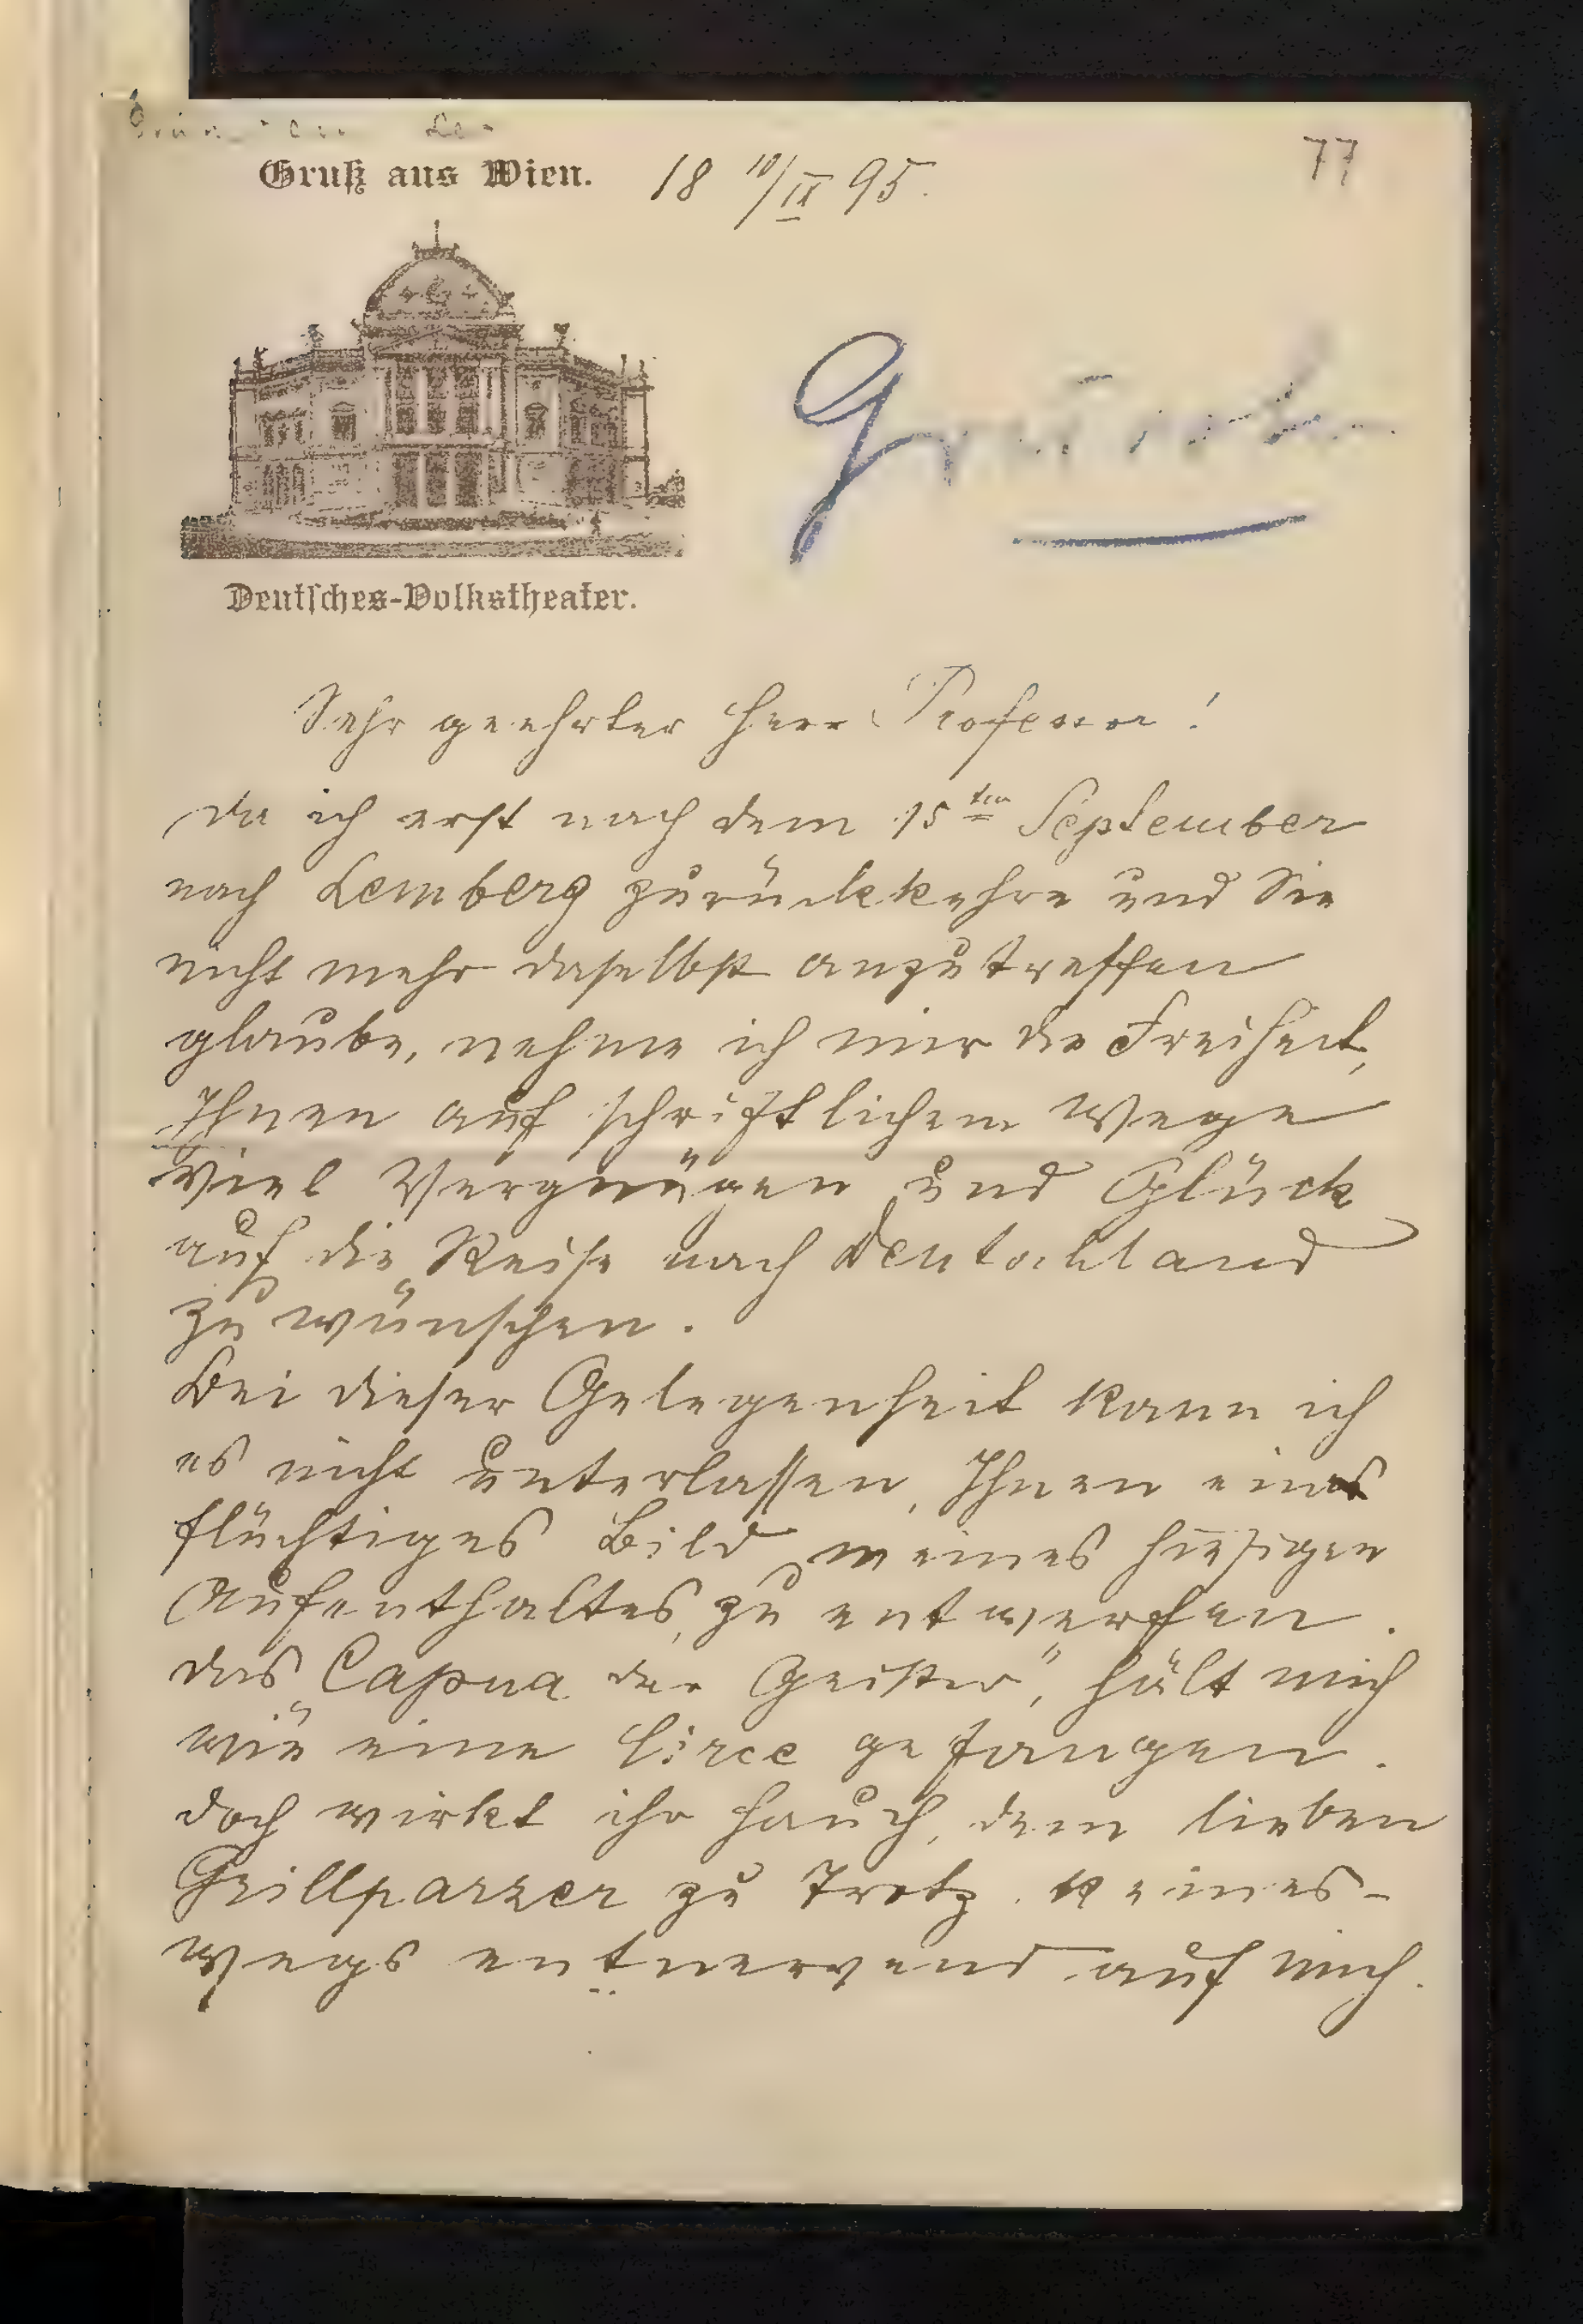 Gruß aus Wien. 18 10/IX 95.
77
Deutsches-Volkstheater.
Sehr geehrter Herr Professor!
Da ich erst nach dem 15ten September
nach Lemberg zurückkehre und Sie
nicht mehr daselbst anzutreffen
glaube, nehme ich mir die Freiheit,
Ihnen auf schriftlichem Wege
viel Vergnügen und Glück
auf die Reise nach Deutschland
zu wünschen.
Bei dieser Gelegenheit kann ich
es nicht unterlassen, Ihnen ein
flüchtiges Bild meines hiesigen
Aufenthaltes, zu entwerfen.
Das „Capua der Geister“, hält mich
wie eine Circe gefangen.
Doch wirkt ihr Hauch, dem lieben
Grillparzer zu Trotz keines-
wegs entnervend auf mich.